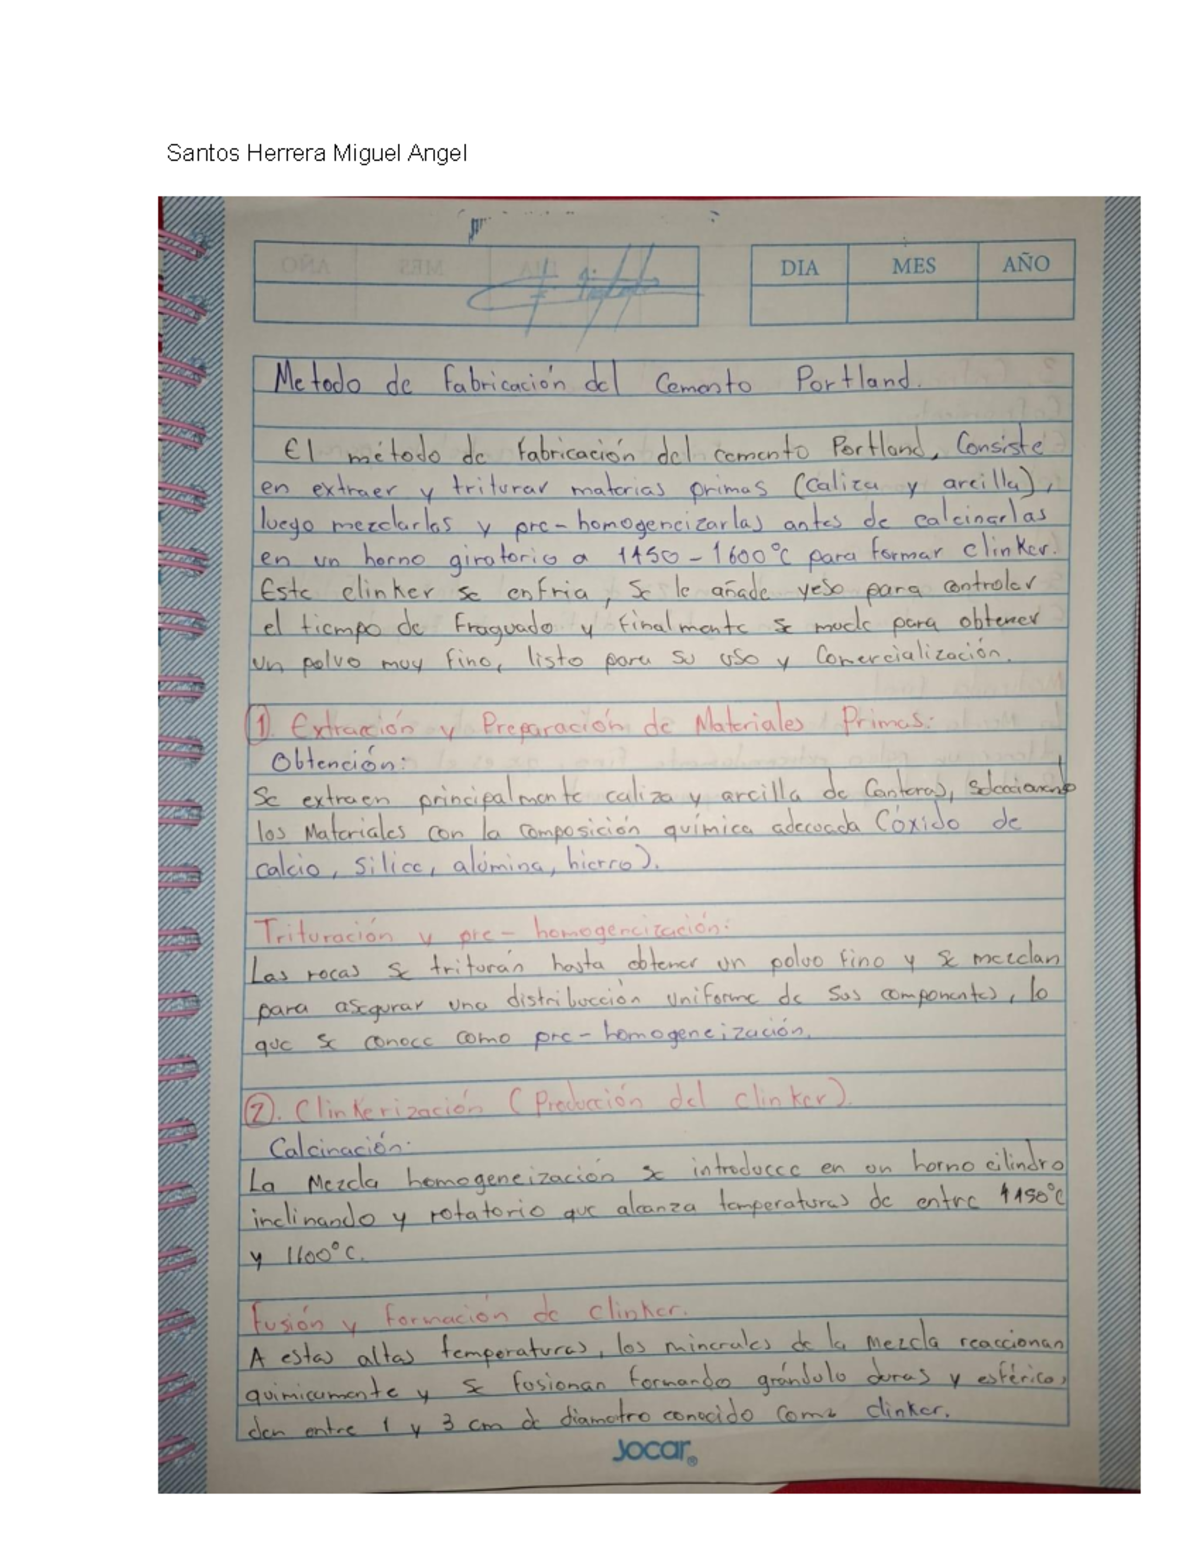 Santos Herrera Miguel Angel
DIA MES AÑO
Metodo de Fabricación del Cemento Portland.
El método de fabricación del cemento Portland, Consiste
en extraer y triturar materias primas (Caliza y arcilla),
luego mezclarlas y pre-homogeneizarlas antes de calcinarlas
en un horno giratorio a 1450-1600°C para formar clinker.
Este clinker se enfria, se le añade yeso para controlar
el tiempo de Fraguado y Finalmente se muele para obtener
un polvo muy fino, listo para su uso y Comercialización.
1. Extracción y Preparación de Materiales Primas:
Obtención:
Se extraen principalmente caliza y arcilla de Canteras, seleccionando
los Materiales con la composición química adecuada Cóxido de
calcio, silice, alúmina, hierro).
Trituración y pre-homogeneización:
Las rocas se trituran hasta obtener un polvo fino y se mezclan
para asegurar una distribucción uniforme de sus componentes, lo
que se conoce como pre-homogeneización.
2. Clinkerización (Producción del clinker).
Calcinación:
La Mezcla homogeneización se introduce en un horno cilindro
inclinando y rotatorio que alcanza temperaturas de entre 1450°C
y 1600°C.
Fusión y formación de clinker.
A estas altas temperaturas, los minerales de la mezcla reaccionan
quimicamente y se fusionan formando grándulo duras y esféricos
den entre 1 y 3 cm de diametro conocido como clinker.
Jocar®